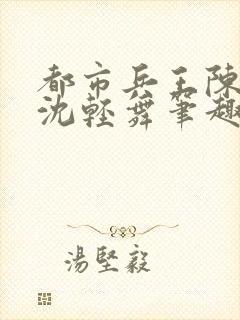 都市兵王陳
沈輕舞笔趣
湯堅毅